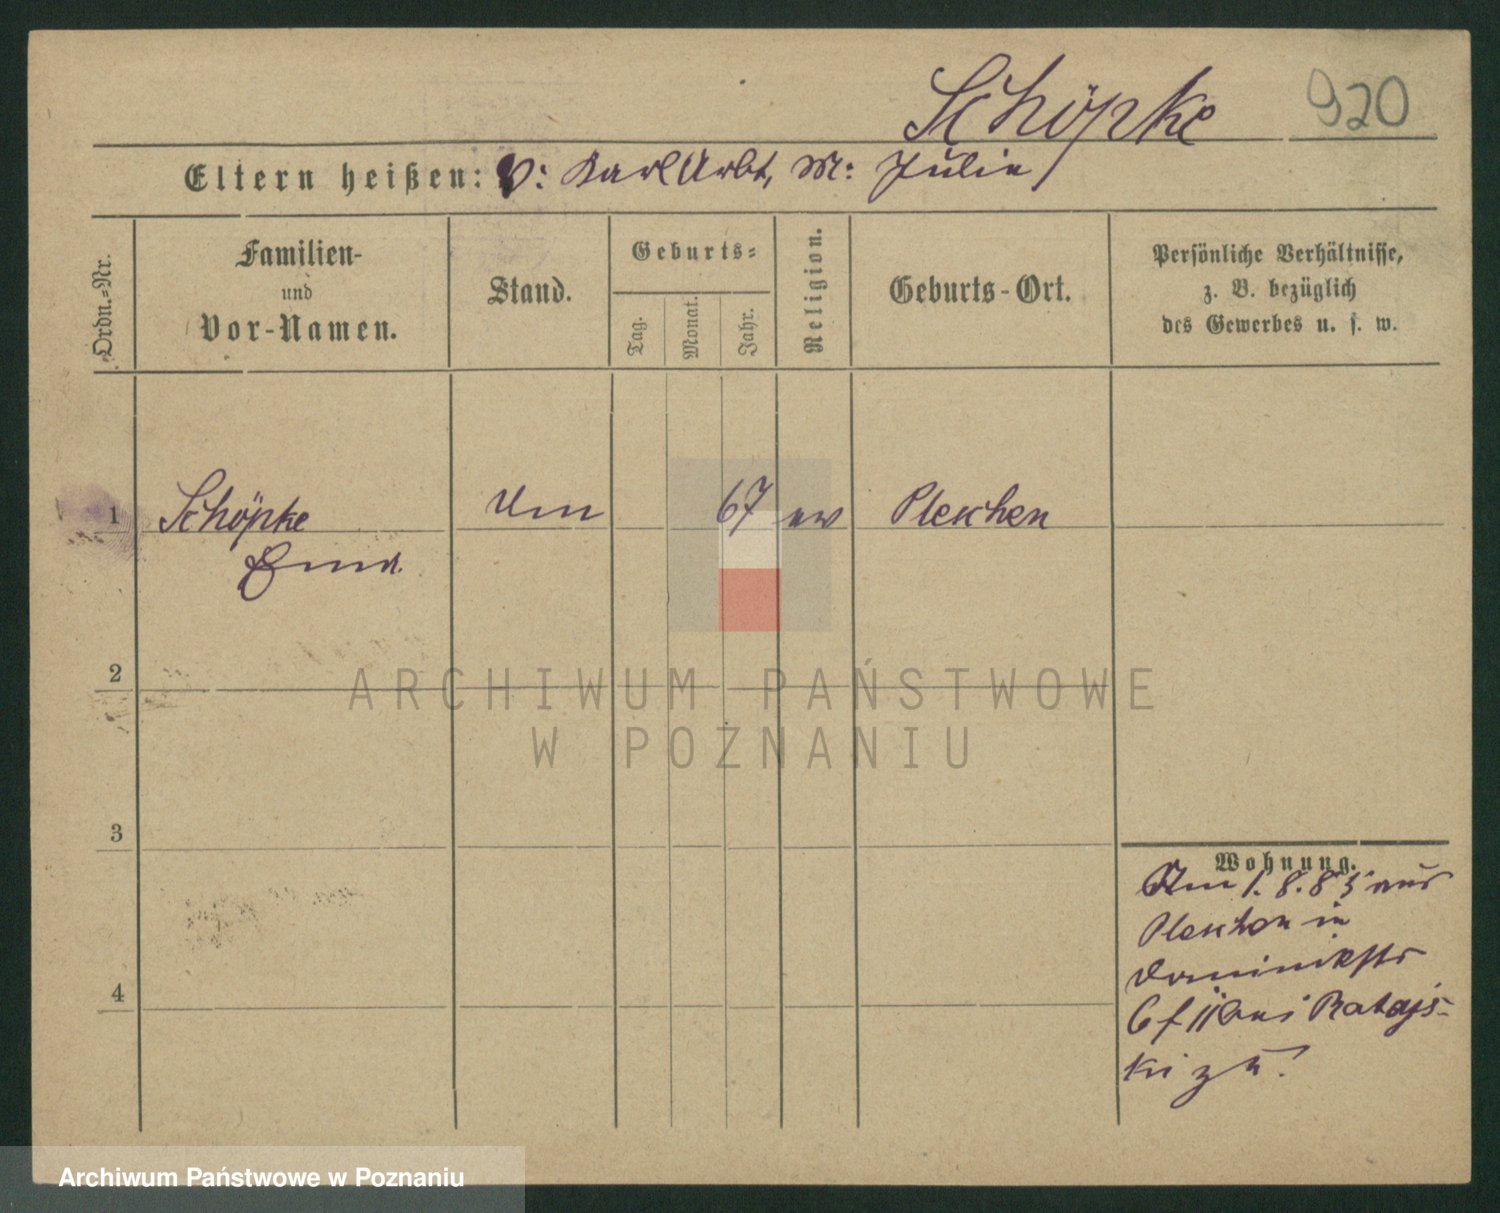 Schöpke 920
Eltern heißen: V: Karl Arbt, M: Julie
Ordn.-Nr.
Familien-
und
Vor-Namen.
Stand.
Geburts-
Tag.
Monat.
Jahr.
Religion.
Geburts-Ort.
Persönliche Verhältnisse,
z. B. bezüglich
des Gewerbes u. s. w.
1 Schöpke 67 ev Pleschen
2
ARCHIWUM PAŃSTWOWE
W POZNANIU
3
Wohnung.
Am 1. 8. 85 aus
Pleschen in
Dominikstr
6 f II bei Ratajs-
ki zu.
4
Archiwum Państwowe w Poznaniu